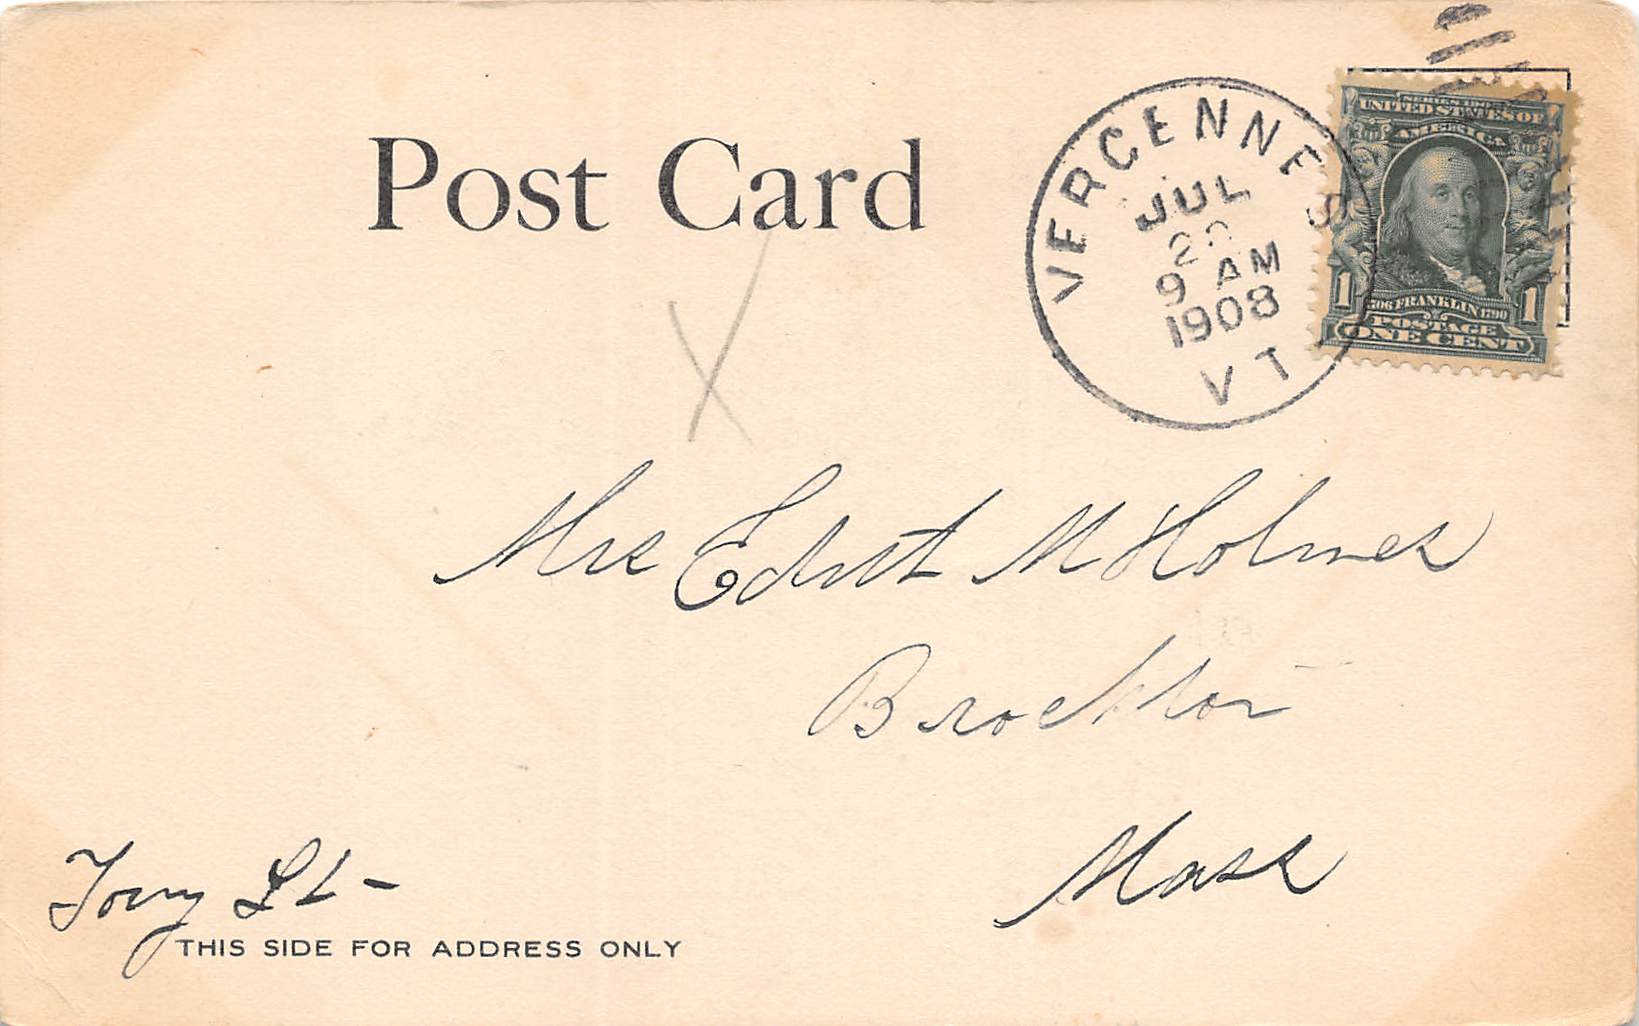 Post Card
VERCENNES
JUL
9 AM
1908
VT
SERIES 1902
UNITED STATES OF
AMERICA
1706 FRANKLIN 1790
1 1
POSTAGE
ONE CENT
Mrs Edith M Holmes
Brockton
Mass
Torrey St-
THIS SIDE FOR ADDRESS ONLY